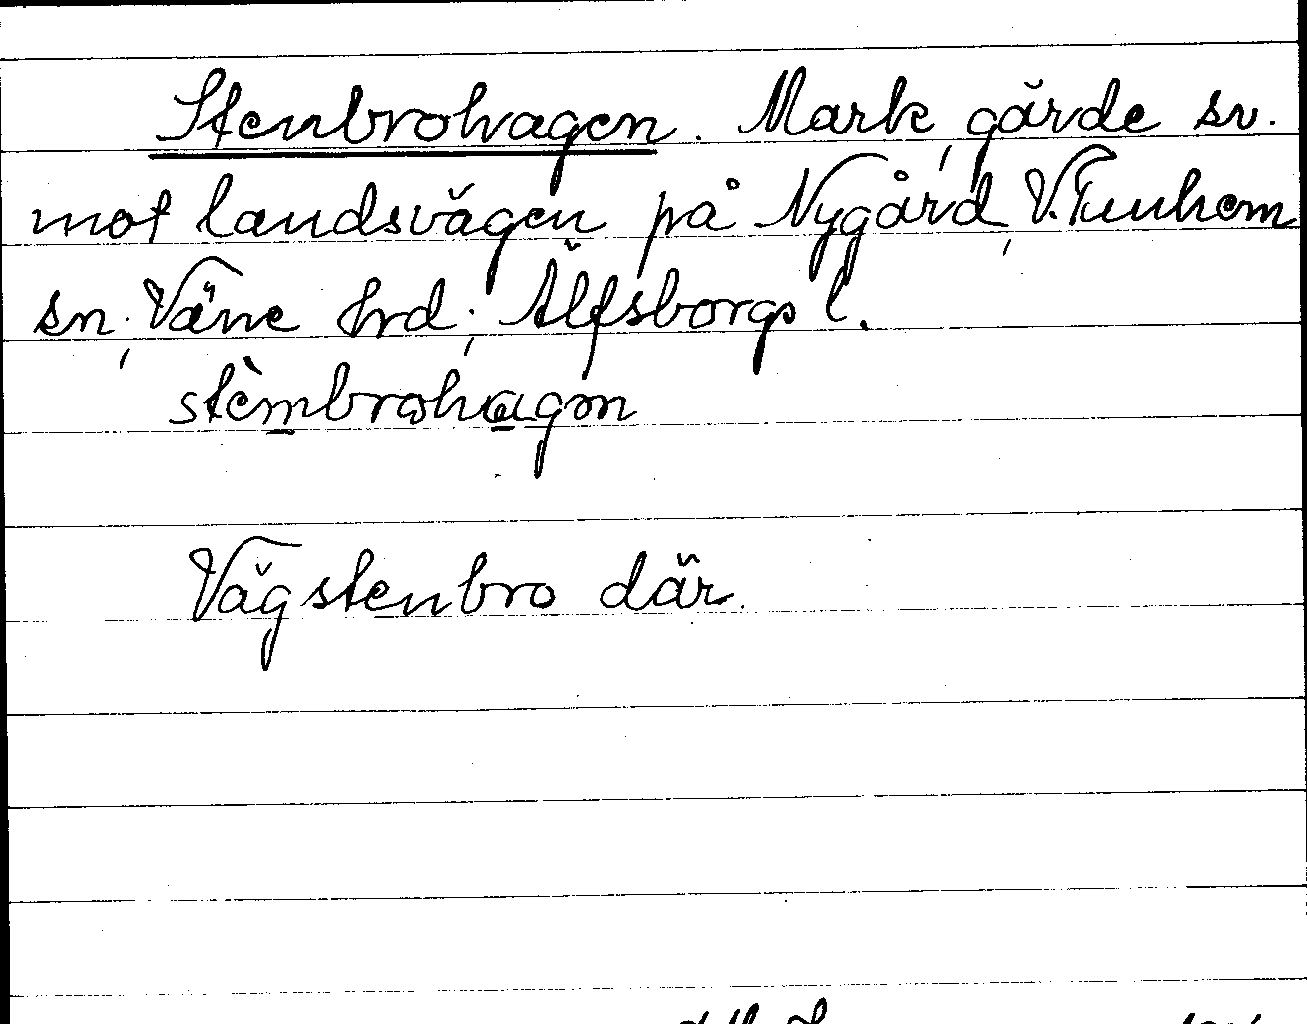 Stenbrohagen. Mark, gärde sv.
mot landsvägen på Nygård, V. Tunhem
sn, Väne hrd, Älfsborgs l.
stèmbrohagən
Vägstenbro där.